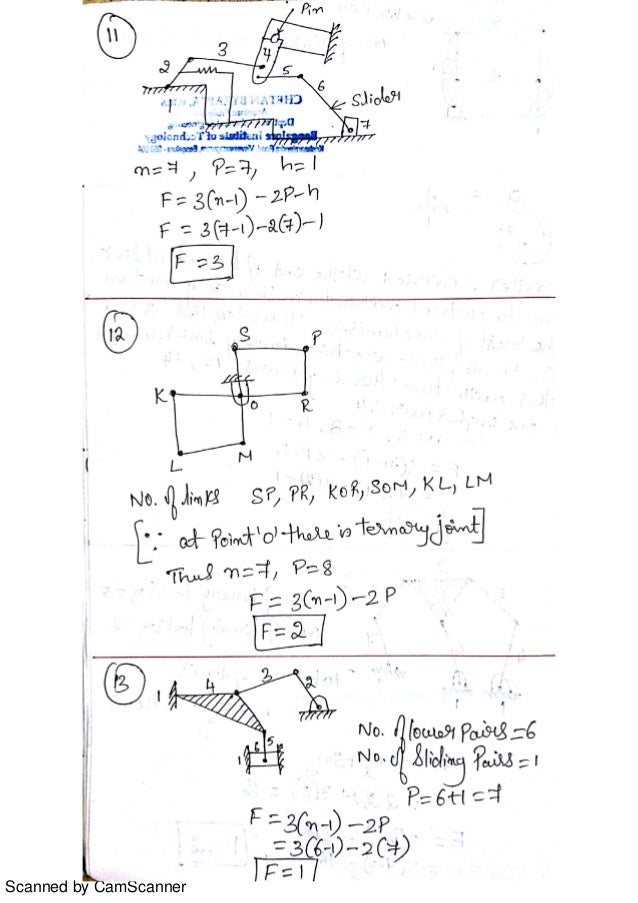 11
Pin
3
2
4
5
6
1
Slider
7
n=7, P=7, h=1
F = 3(n-1) - 2P-h
F = 3(7-1)-2(7)-1
F = 3
12
S
P
K
O
R
L
M
No. of links SP, PR, KOR, SOM, KL, LM
[∵ at Point 'O' there is ternary joint]
Thus n=7, P=8
F = 3(n-1) - 2P
F = 2
13
1
4
3
2
5
6
1
No. of lower Pairs = 6
No. of Sliding Pairs = 1
P = 6+1 = 7
F = 3(n-1) - 2P
= 3(6-1) - 2(7)
F = 1
Scanned by CamScanner